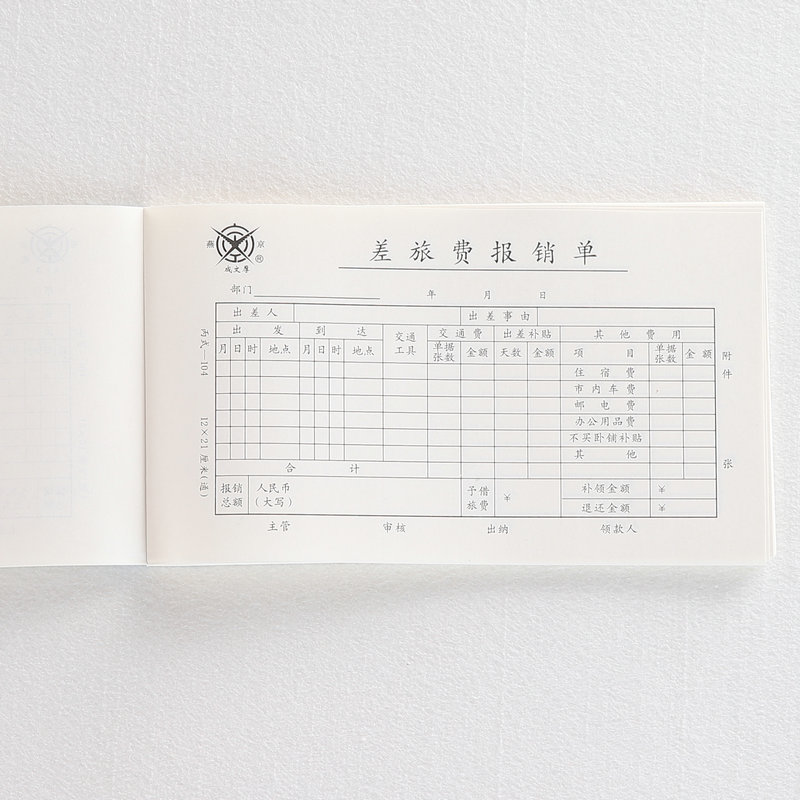 燕 京
成文厚
差旅费报销单
部门 年 月 日
出差人 出差事由
出发 到达 交通工具 交通费 出差补贴 其他费用
月 日 时 地点 月 日 时 地点 单据张数 金额 天数 金额 项目 单据张数 金额
住宿费
市内车费
邮电费
办公用品费
不买卧铺补贴
其他
合计
报销总额 人民币(大写) 予借旅费 ¥ 补领金额 ¥
退还金额 ¥
主管 审核 出纳 领款人
附件 张
丙式—104 12×21厘米(通)